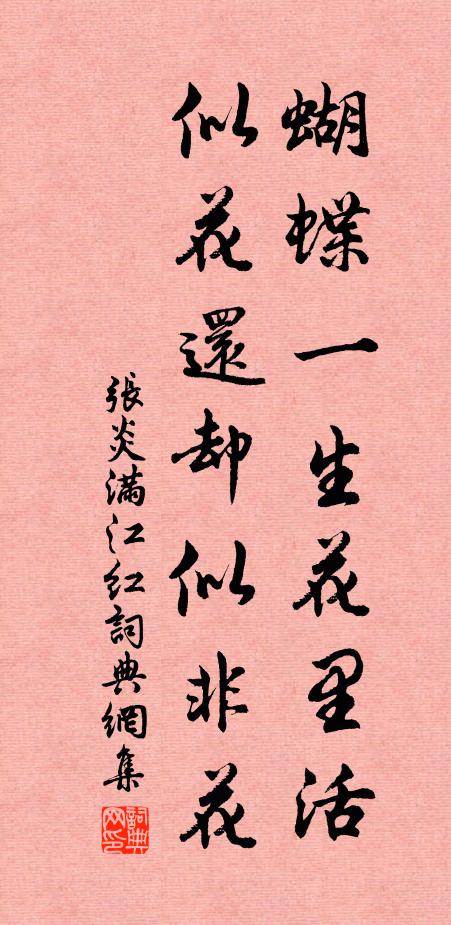 蝴蝶一生花里活
似花還却似非花
張炎满江红詞典網集
詞典网印